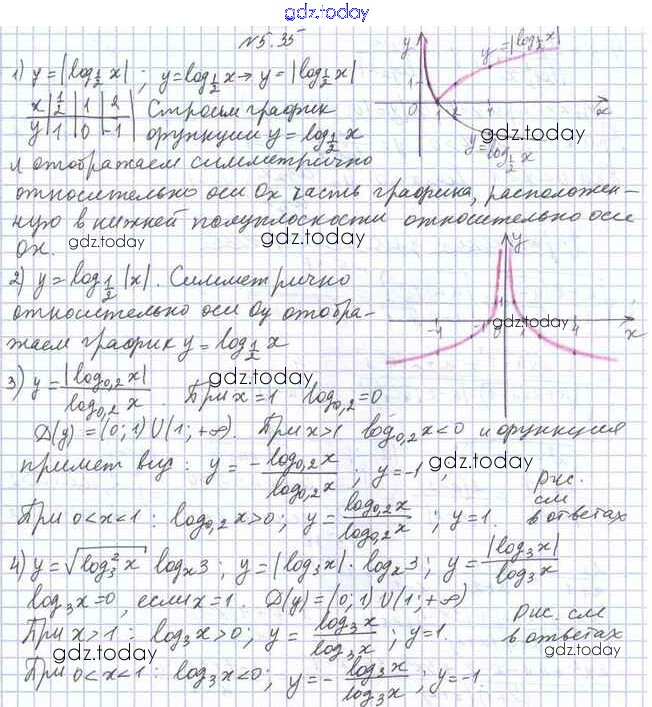 gdz.today
№5.35
1) y = |log_{1/2} x| ; y = log_{1/2} x → y = |log_{1/2} x|
x | 1/2 | 1 | 2 | Строим график
y | 1 | 0 | -1 | функции y = log_{1/2} x
и отображаем симметрично
относительно оси Ox часть графика, расположен-
ную в нижней полуплоскости относительно оси
Ox. gdz.today gdz.today
y
y = |log_{1/2} x|
1
0 1 2 x
gdz.today
y = log_{1/2} x
2) y = log_{1/2} |x|. Симметрично
относительно оси Oy отобра-
жаем график y = log_{1/2} x
gdz.today
y
1
-1 0 1 4 x
gdz.today
3) y = |log_{0,2} x| / log_{0,2} x . При x = 1 log_{0,2} = 0
gdz.today
D(y) = (0; 1) U (1; +∞). При x > 1 log_{0,2} x < 0 и функция
примет вид: y = - log_{0,2} x / log_{0,2} x ; y = -1 ;
gdz.today gdz.today
Рис.
см
в ответах
При 0 < x < 1 : log_{0,2} x > 0 ; y = log_{0,2} x / log_{0,2} x ; y = 1.
4) y = √(log_3^2 x) log_x 3 ; y = |log_3 x| · log_x 3 ; y = |log_3 x| / log_3 x
gdz.today
log_3 x = 0, если x = 1. D(y) = (0; 1) U (1; +∞)
Рис. см
в ответах
При x > 1 : log_3 x > 0 ; y = log_3 x / log_3 x ; y = 1.
gdz.today gdz.today
При 0 < x < 1 : log_3 x < 0 ; y = - log_3 x / log_3 x ; y = -1.
gdz.today